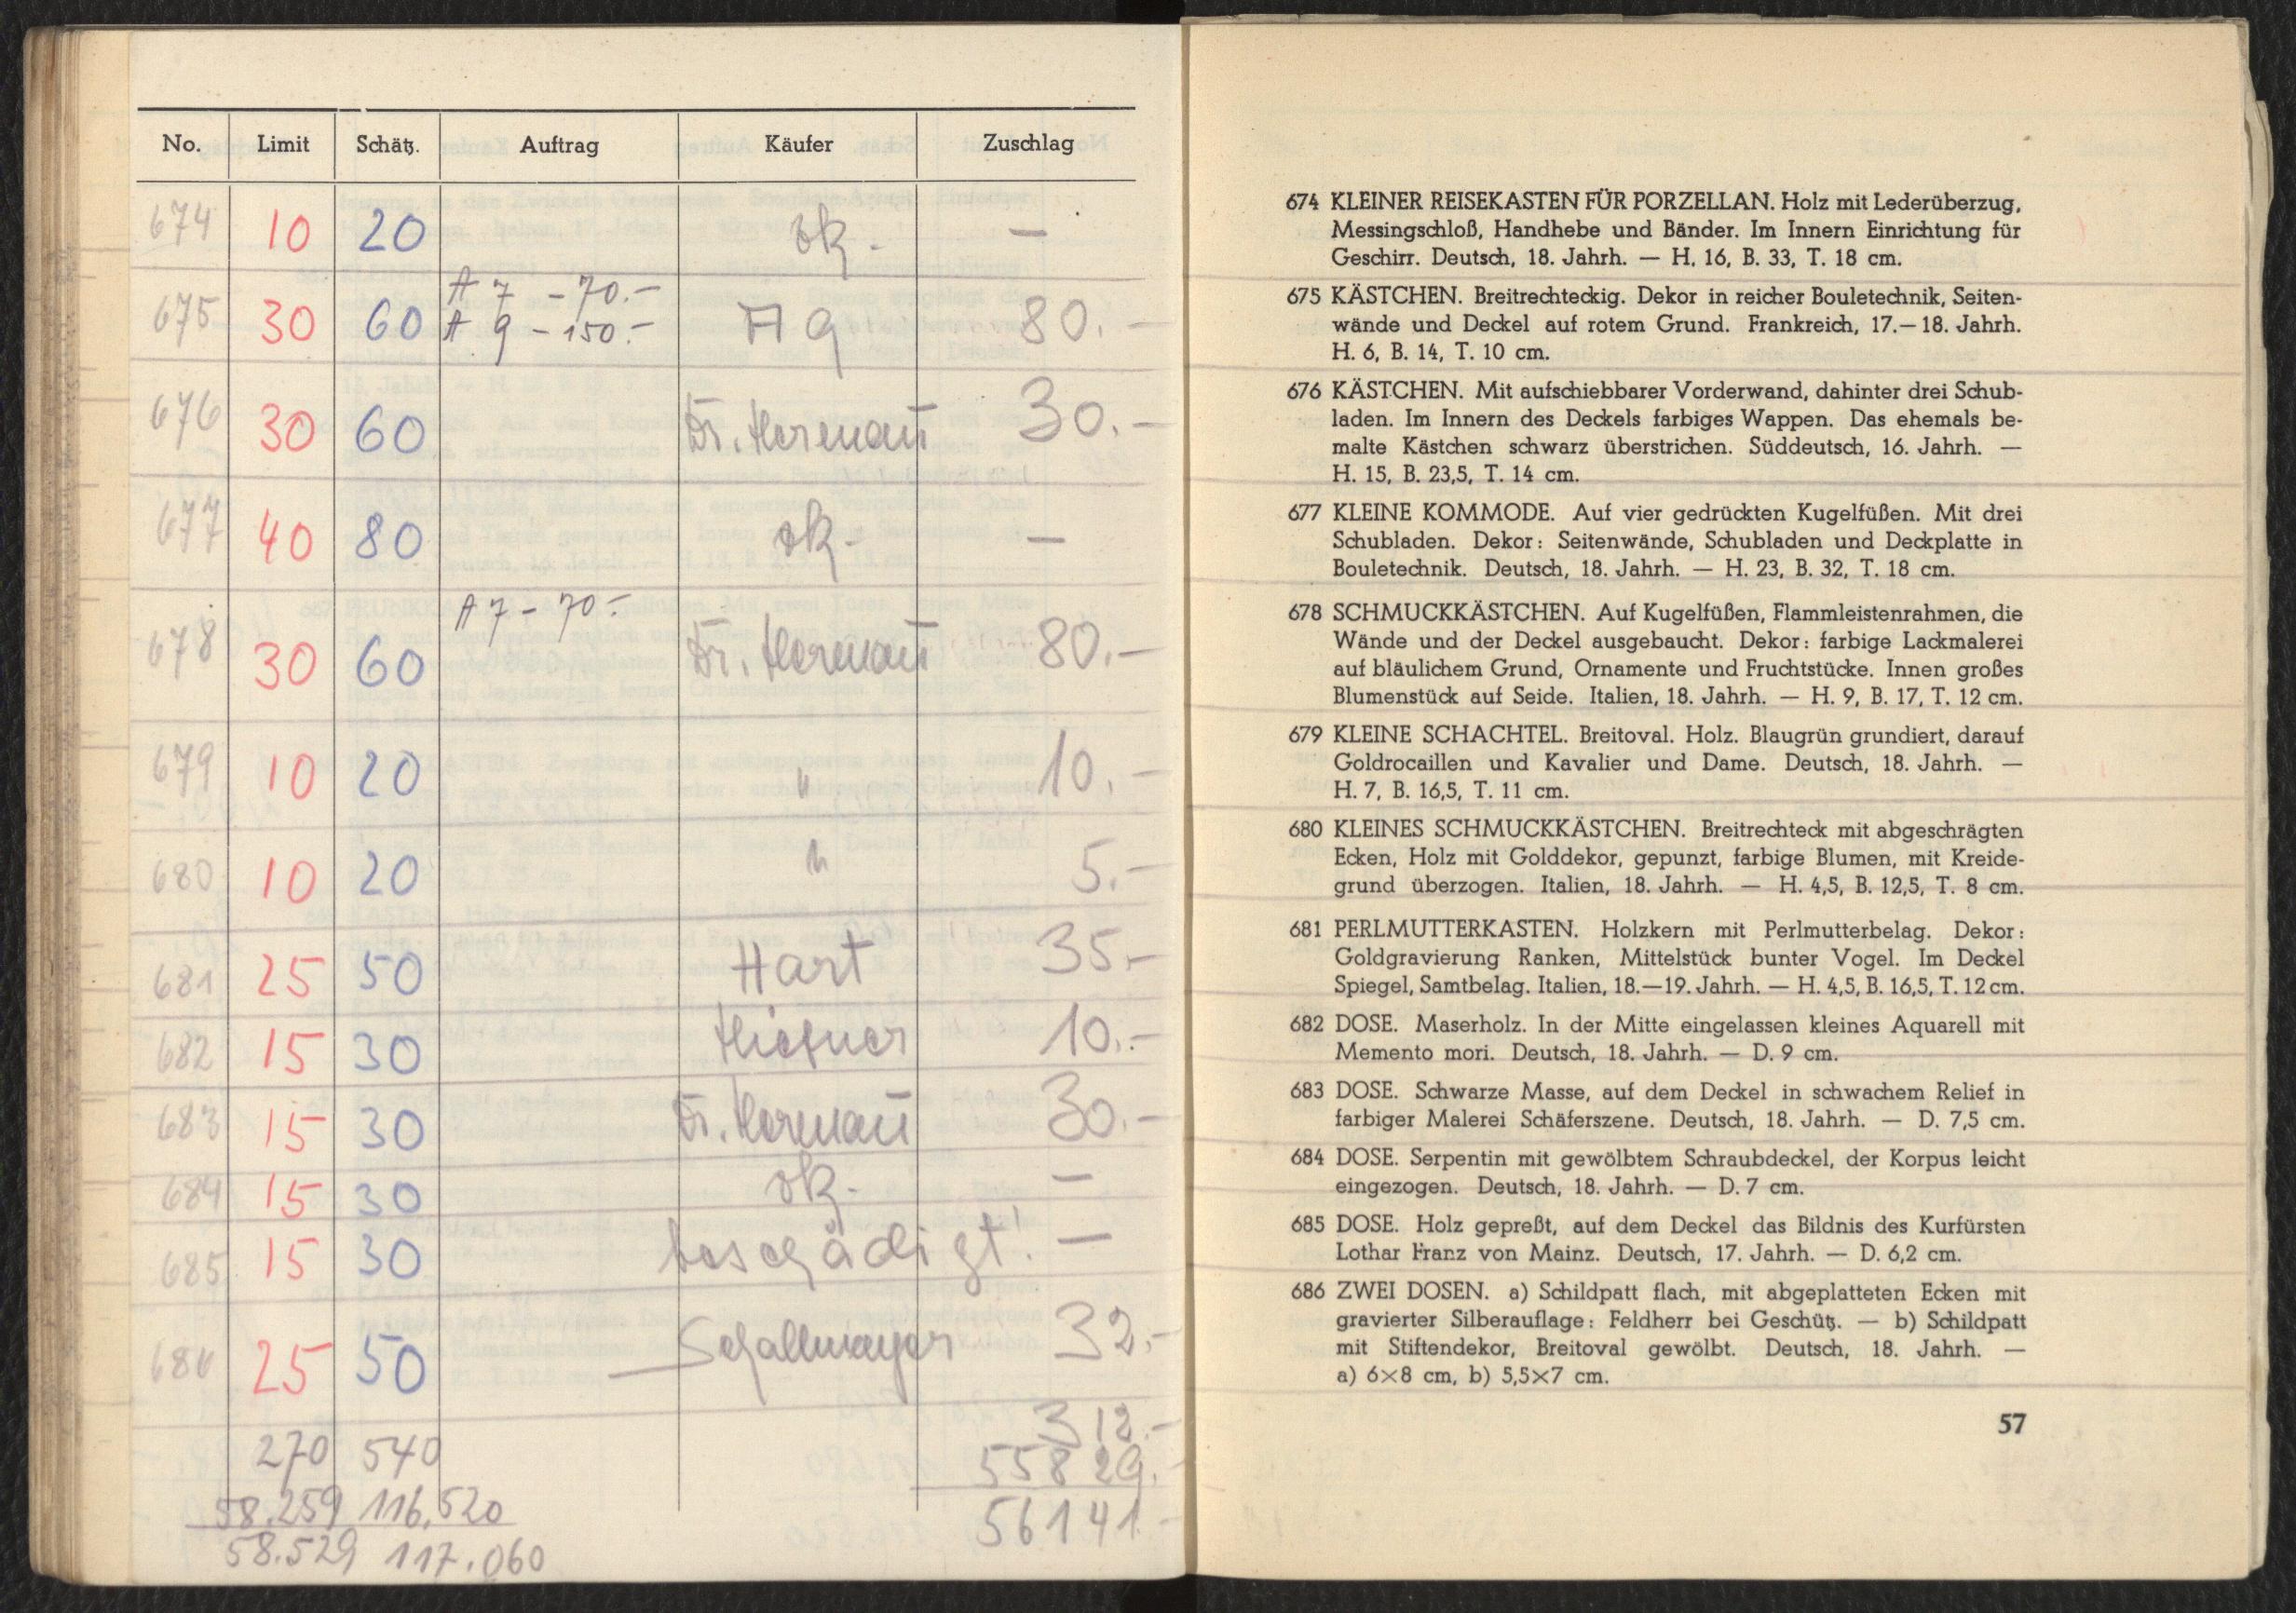 No. Limit Schätz. Auftrag Käufer Zuschlag
674 10 20 ok. —
A 7 - 70.-
675 30 60 A 9 - 150.- A 9 80.-
676 30 60 Dr. Hermann 30.-
677 40 80 ok. —
A 7 - 70.-
678 30 60 Dr. Hermann 80.-
679 10 20 " 10.-
680 10 20 " 5.-
681 25 50 Hart 35.-
682 15 30 10.-
683 15 30 Dr. Hermann 30.-
684 15 30 ok. —
685 15 30 beschädigt! —
686 25 50 Schallmayer 32.-
312.-
270 540 55829.-
58.259 116.520 56141.-
58.529 117.060
674 KLEINER REISEKASTEN FÜR PORZELLAN. Holz mit Lederüberzug,
Messingschloß, Handhebe und Bänder. Im Innern Einrichtung für
Geschirr. Deutsch, 18. Jahrh. — H. 16, B. 33, T. 18 cm.
675 KÄSTCHEN. Breitrechteckig. Dekor in reicher Bouletechnik, Seiten-
wände und Deckel auf rotem Grund. Frankreich, 17.—18. Jahrh.
H. 6, B. 14, T. 10 cm.
676 KÄSTCHEN. Mit aufschiebbarer Vorderwand, dahinter drei Schub-
laden. Im Innern des Deckels farbiges Wappen. Das ehemals be-
malte Kästchen schwarz überstrichen. Süddeutsch, 16. Jahrh. —
H. 15, B. 23,5, T. 14 cm.
677 KLEINE KOMMODE. Auf vier gedrückten Kugelfüßen. Mit drei
Schubladen. Dekor: Seitenwände, Schubladen und Deckplatte in
Bouletechnik. Deutsch, 18. Jahrh. — H. 23, B. 32, T. 18 cm.
678 SCHMUCKKÄSTCHEN. Auf Kugelfüßen, Flammleistenrahmen, die
Wände und der Deckel ausgebaucht. Dekor: farbige Lackmalerei
auf bläulichem Grund, Ornamente und Fruchtstücke. Innen großes
Blumenstück auf Seide. Italien, 18. Jahrh. — H. 9, B. 17, T. 12 cm.
679 KLEINE SCHACHTEL. Breitoval. Holz. Blaugrün grundiert, darauf
Goldrocaillen und Kavalier und Dame. Deutsch, 18. Jahrh. —
H. 7, B. 16,5, T. 11 cm.
680 KLEINES SCHMUCKKÄSTCHEN. Breitrechteck mit abgeschrägten
Ecken, Holz mit Golddekor, gepunzt, farbige Blumen, mit Kreide-
grund überzogen. Italien, 18. Jahrh. — H. 4,5, B. 12,5, T. 8 cm.
681 PERLMUTTERKASTEN. Holzkern mit Perlmutterbelag. Dekor:
Goldgravierung Ranken, Mittelstück bunter Vogel. Im Deckel
Spiegel, Samtbelag. Italien, 18.—19. Jahrh. — H. 4,5, B. 16,5, T. 12 cm.
682 DOSE. Maserholz. In der Mitte eingelassen kleines Aquarell mit
Memento mori. Deutsch, 18. Jahrh. — D. 9 cm.
683 DOSE. Schwarze Masse, auf dem Deckel in schwachem Relief in
farbiger Malerei Schäferszene. Deutsch, 18. Jahrh. — D. 7,5 cm.
684 DOSE. Serpentin mit gewölbtem Schraubdeckel, der Korpus leicht
eingezogen. Deutsch, 18. Jahrh. — D. 7 cm.
685 DOSE. Holz gepreßt, auf dem Deckel das Bildnis des Kurfürsten
Lothar Franz von Mainz. Deutsch, 17. Jahrh. — D. 6,2 cm.
686 ZWEI DOSEN. a) Schildpatt flach, mit abgeplatteten Ecken mit
gravierter Silberauflage: Feldherr bei Geschütz. — b) Schildpatt
mit Stiftendekor, Breitoval gewölbt. Deutsch, 18. Jahrh. —
a) 6×8 cm, b) 5,5×7 cm.
57